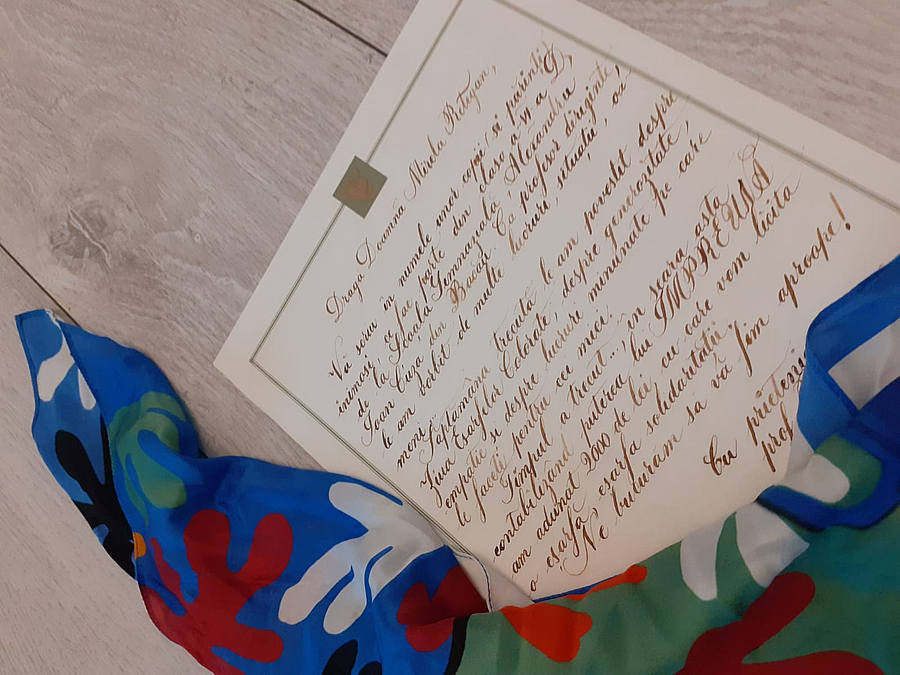 Dragă Doamnă Mirela Retegan,
Vă scriu în numele unor copii și părinți
inimoși, ce fac parte din clasa a VI a D,
de la Școala Gimnazială Alexandru
Ioan Cuza din Bacău. Ca profesor diriginte,
le-am vorbit de multe lucruri, situații, oa-
meni.
Săptămâna trecută le-am povestit despre
Ziua Eșarfelor Colorate, despre generozitate,
empatie și despre lucruri minunate pe care
le faceți pentru cei mici.
Timpul a trecut..., în seara asta
contabilizând puterea lui ÎMPREUNĂ
am adunat 2000 de lei, cu care vom licita
o eșarfă, eșarfa solidarității.
Ne bucurăm să vă fim aproape!
Cu prietenie
prof